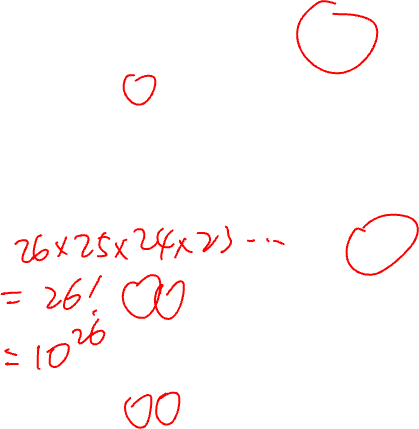 26×25×24×23...
= 26!
= 10^26